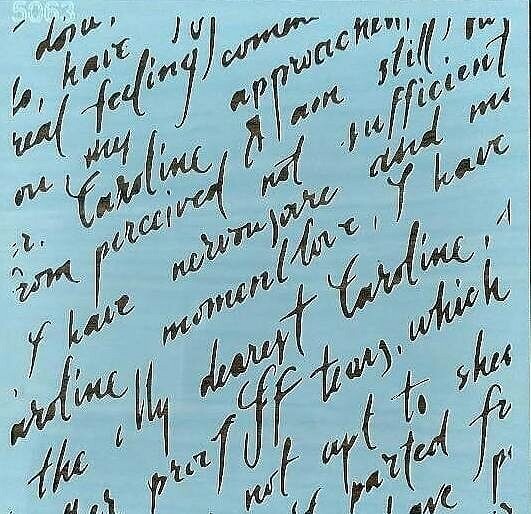 5063
done,
o, have
real feeling, comm
on my approachem
r. Caroline I am still, su
rom perceived not sufficient
I have nervous are and mu
moment love, I have
aroline My dearest Caroline, A
the prooff tears, which
not apt to shed
parted fr
have p